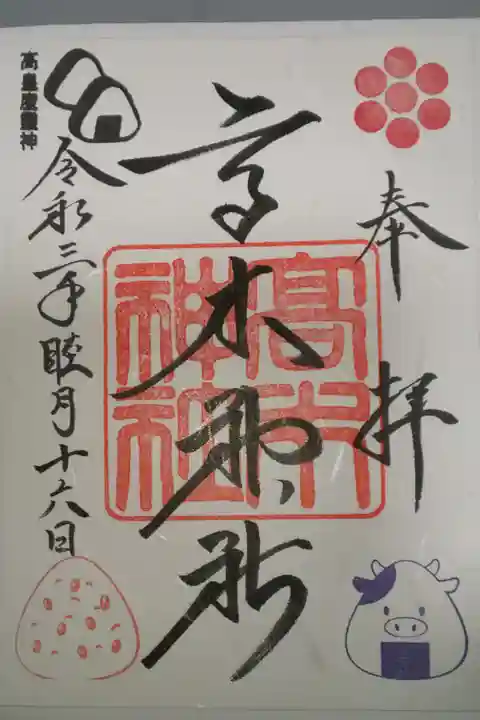 奉拝
高木神社
高木神社
高皇産靈神
令和三年睦月十六日